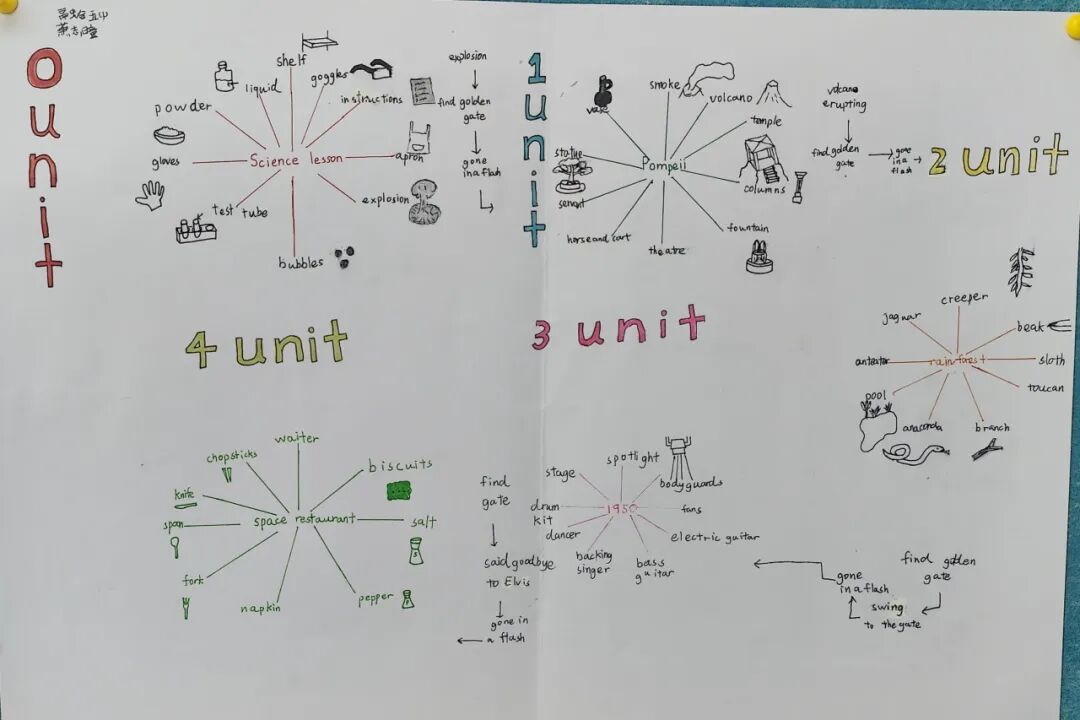 0 unit
shelf
goggles
liquid
instructions
powder
gloves
Science lesson
apron
test tube
explosion
bubbles
explosion
find golden
gate
gone
in a flash
1 unit
smoke
volcano
vase
temple
statue
Pompeii
columns
servant
horse and cart
theatre
fountain
volcano
erupting
find golden
gate
gone
in a
flash
2 unit
creeper
jaguar
beak
anteater
rainforest
sloth
toucan
pool
anaconda
branch
find golden
gate
swing
to the gate
gone
in a flash
3 unit
spotlight
stage
bodyguards
drum
kit
1950
fans
dancer
electric guitar
backing
singer
bass
guitar
find
gate
said goodbye
to Elvis
gone in
a flash
4 unit
waiter
chopsticks
biscuits
knife
span
space restaurant
salt
fork
napkin
pepper